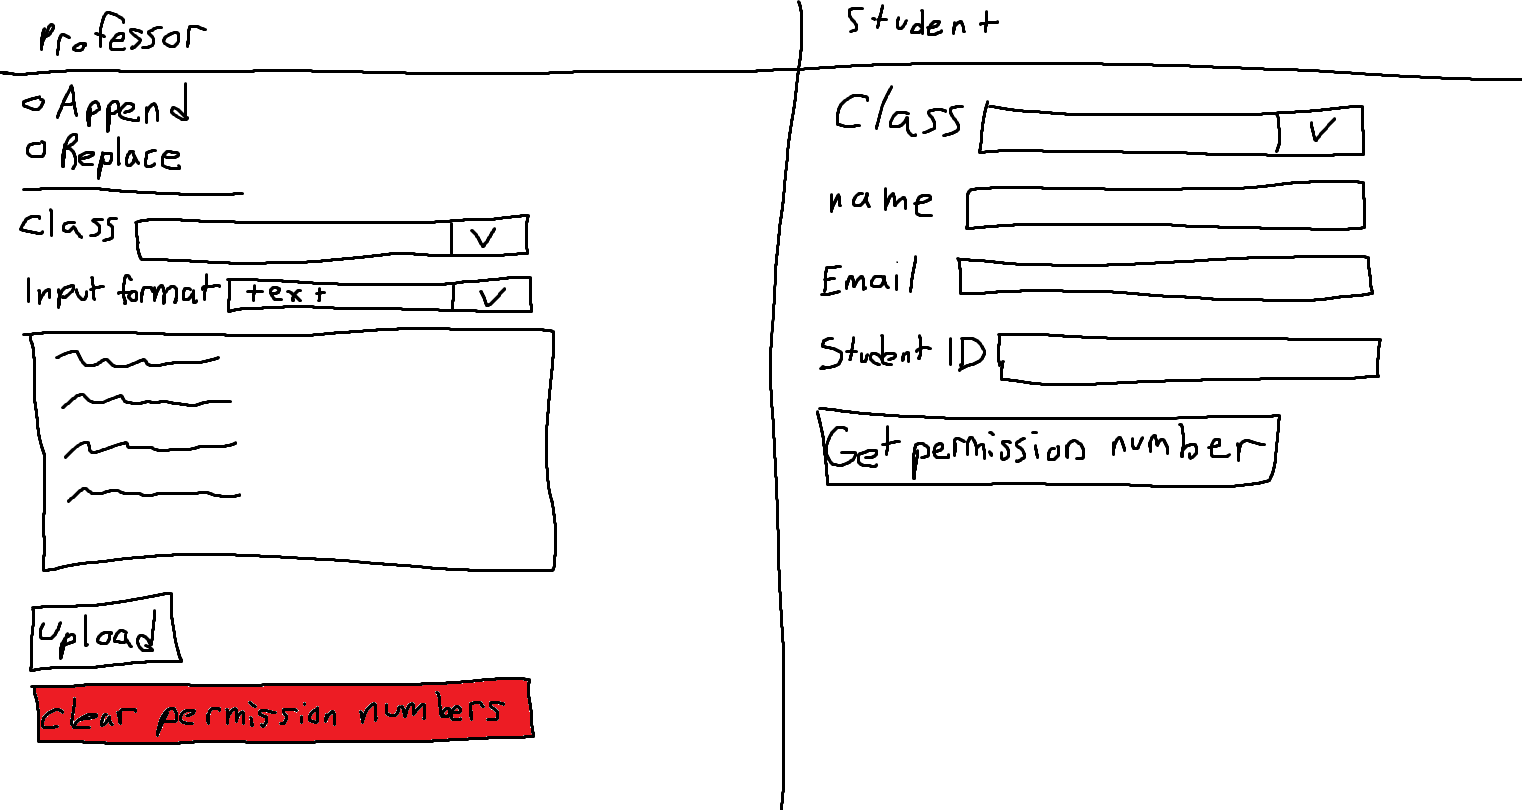 Professor
Append
Replace
Class
Input format text
Upload
clear permission numbers
Student
Class
name
Email
Student ID
Get permission number